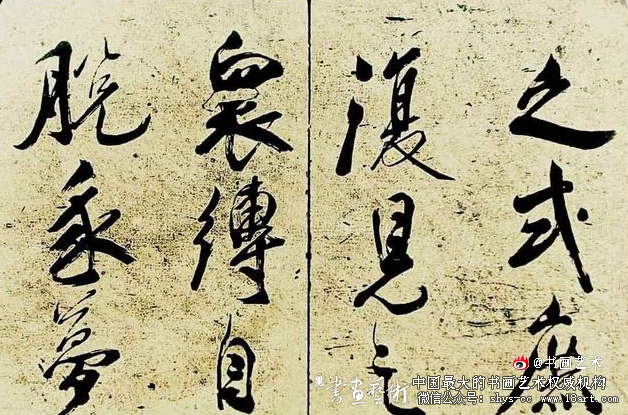 之式
復見
眾縛自
脫夢
@书画艺术
書畫藝術
中国最大的书画艺术权威机构
微信公众号：shys-cc www.18art.com